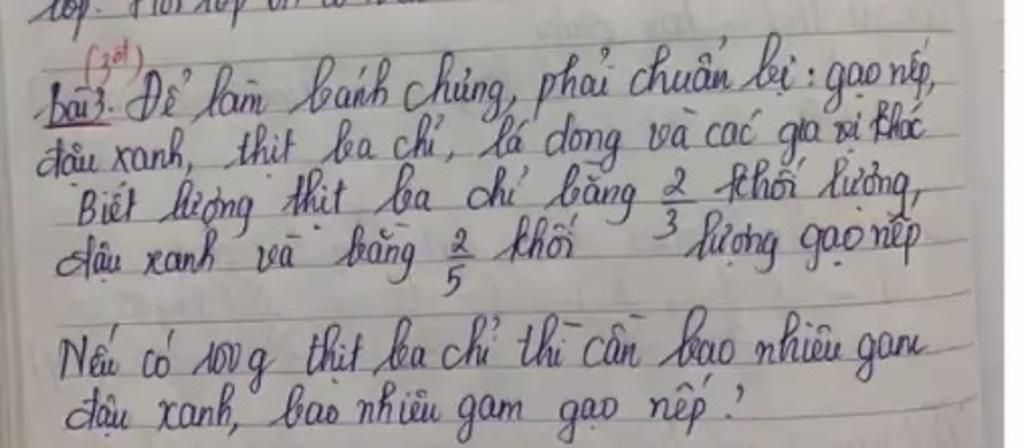 lớp.
(3đ)
Bài 3. Để làm bánh chưng, phải chuẩn bị: gạo nếp,
đậu xanh, thịt ba chỉ, lá dong và các gia vị khác
Biết lượng thịt ba chỉ bằng 2/3 khối lượng,
đậu xanh và bằng 2/5 khối lượng gạo nếp
Nếu có 100g thịt ba chỉ thì cần bao nhiêu gam
đậu xanh, bao nhiêu gam gạo nếp?